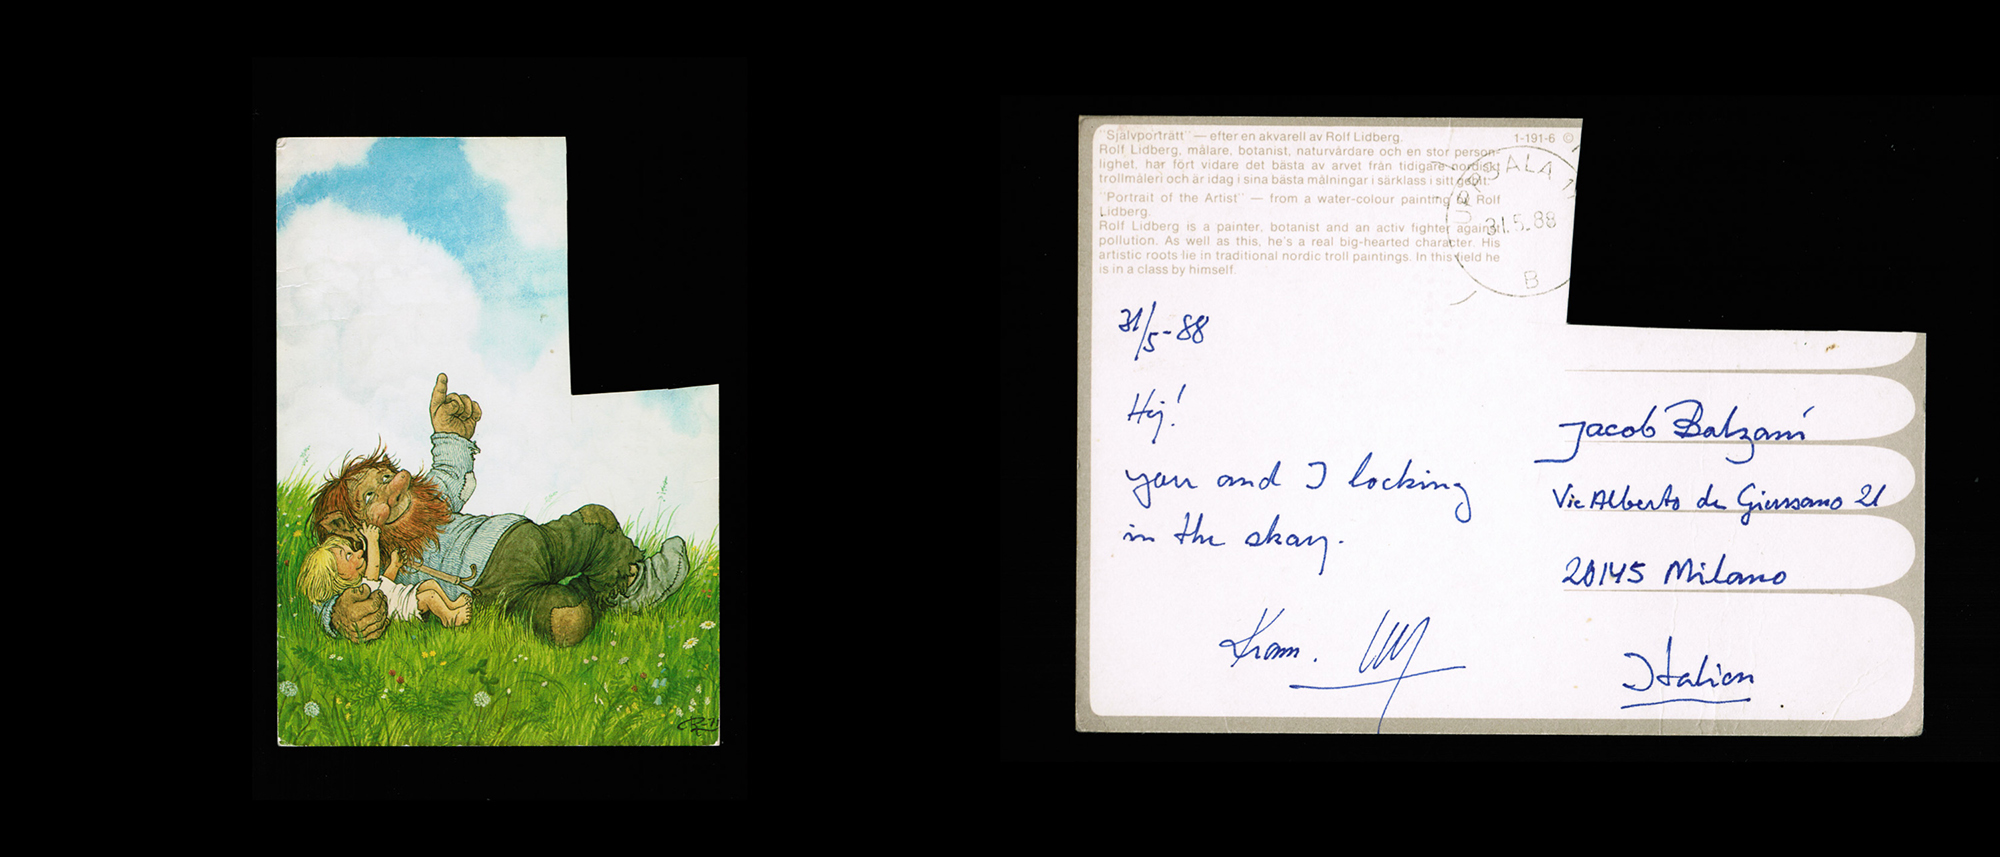 "Självporträtt" — efter en akvarell av Rolf Lidberg. 1-191-6 ©
Rolf Lidberg, målare, botanist, naturvårdare och en stor person-
lighet, har fört vidare det bästa av arvet från tidigare nordisk
trollmåleri och är idag i sina bästa målningar i särklass i sitt gebit.
"Portrait of the Artist" — from a water-colour painting of Rolf
Lidberg.
Rolf Lidberg is a painter, botanist and an activ fighter against
pollution. As well as this, he's a real big-hearted character. His
artistic roots lie in traditional nordic troll paintings. In this field he
is in a class by himself.
UPPSALA 1
31.5.88
B
31/5-88
Hej!
you and I locking
in the skay.
Kram.
Jacob Balzani
Via Alberto da Giussano 21
20145 Milano
Italien